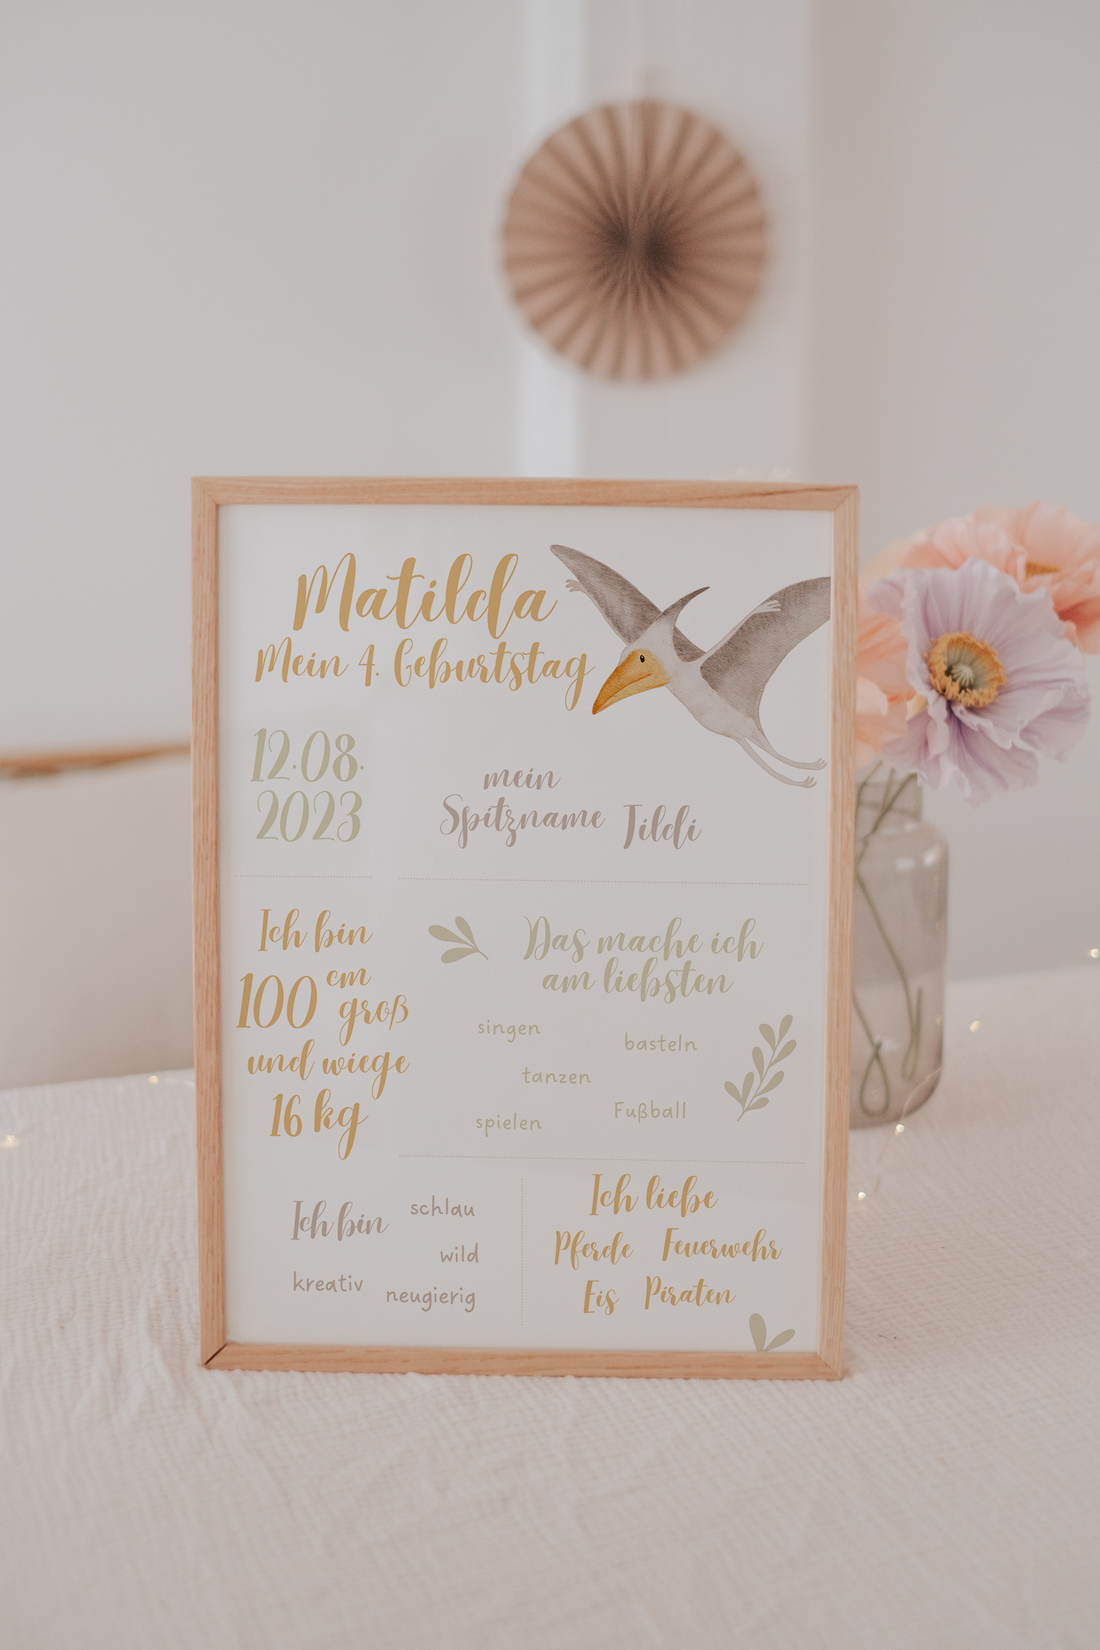 Matilda
Mein 4. Geburtstag
12.08.
2023
mein
Spitzname Tildi
Ich bin
100 cm
groß
und wiege
16 kg
Das mache ich
am liebsten
singen
basteln
tanzen
Fußball
spielen
Ich bin schlau
wild
kreativ
neugierig
Ich liebe
Pferde Feuerwehr
Eis Piraten